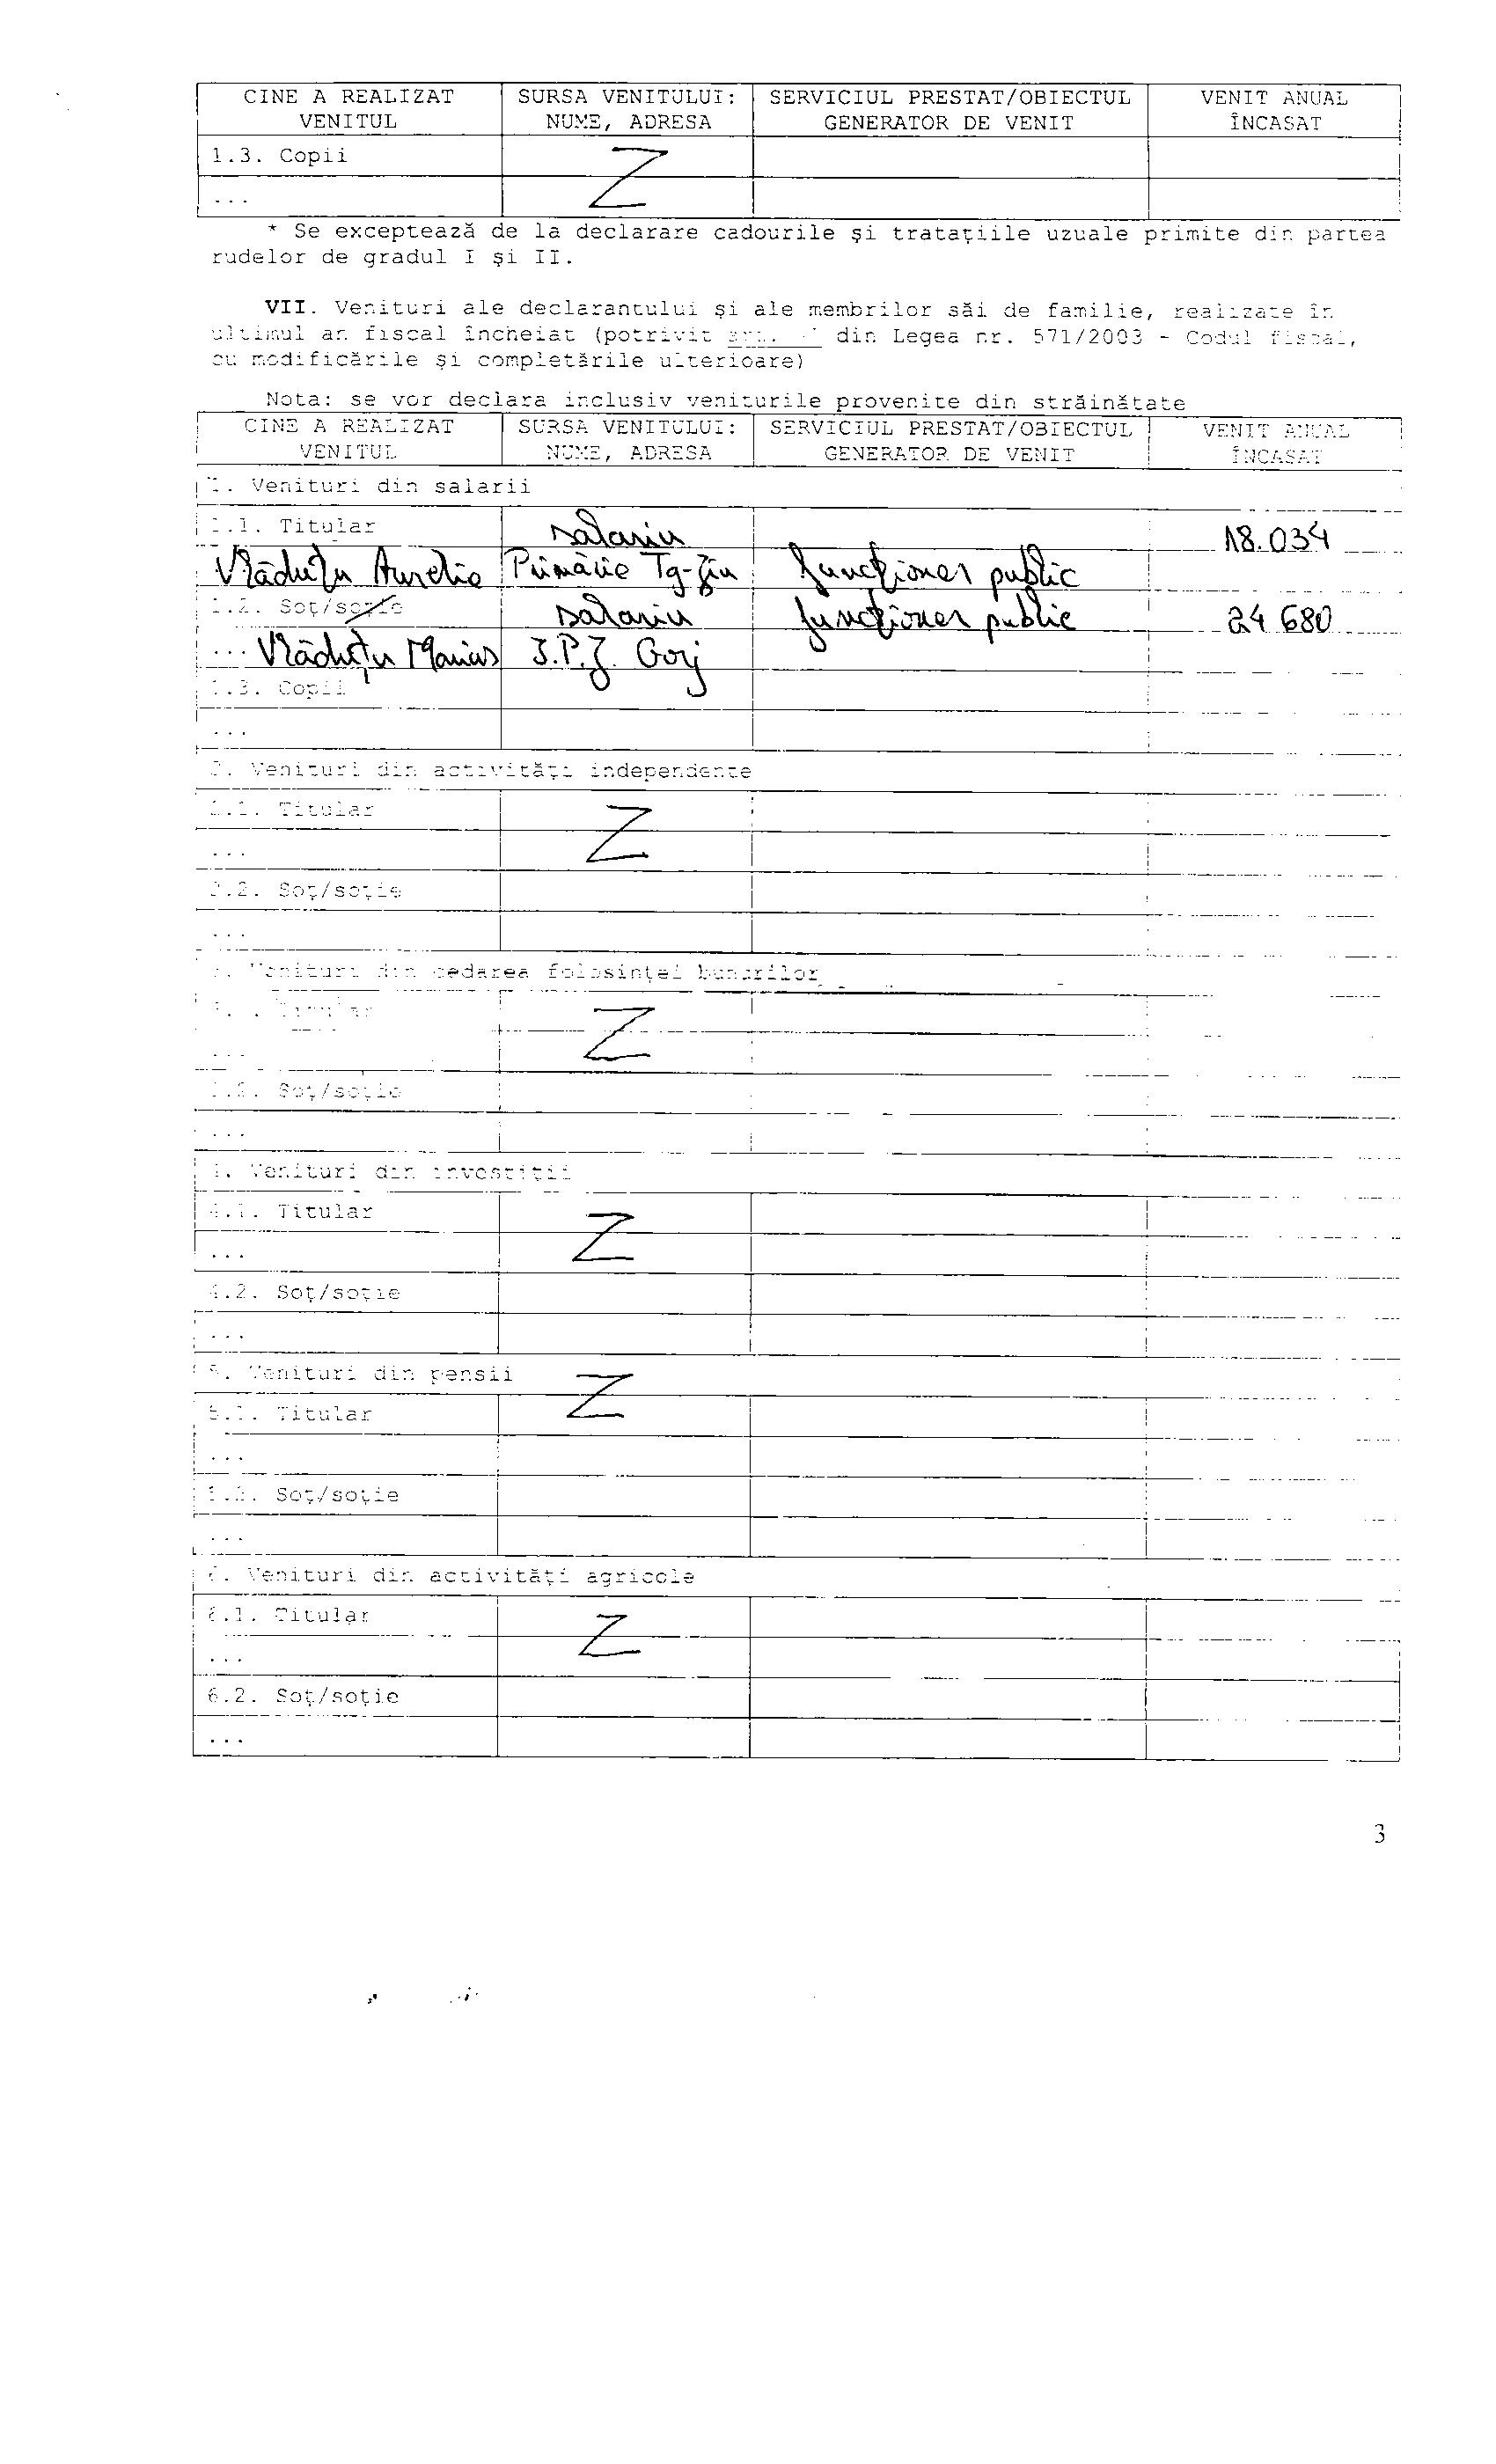 CINE A REALIZAT VENITUL | SURSA VENITULUI: NUME, ADRESA | SERVICIUL PRESTAT/OBIECTUL GENERATOR DE VENIT | VENIT ANUAL ÎNCASAT
1.3. Copii Z
...
* Se exceptează de la declarare cadourile şi trataţiile uzuale primite din partea
rudelor de gradul I şi II.
VII. Venituri ale declarantului şi ale membrilor săi de familie, realizate în
ultimul an fiscal încheiat (potrivit art. din Legea nr. 571/2003 - Codul fiscal,
cu modificările şi completările ulterioare)
Nota: se vor declara inclusiv veniturile provenite din străinătate
CINE A REALIZAT VENITUL | SURSA VENITULUI: NUME, ADRESA | SERVICIUL PRESTAT/OBIECTUL GENERATOR DE VENIT | VENIT ANUAL ÎNCASAT
1. Venituri din salarii
1.1. Titular salariu 18.034
Vlăduţu Aurelia Primărie Tg-Jiu funcţionar public
1.2. Soţ/soţie salariu funcţionar public 24 680
... Vlăduţu Marius I.P.J. Gorj
1.3. Copii
...
2. Venituri din activităţi independente
2.1. Titular Z
...
2.2. Soţ/soţie
...
3. Venituri din cedarea folosinţei bunurilor
3.1. Titular Z
...
3.2. Soţ/soţie
...
4. Venituri din investiţii
4.1. Titular Z
...
4.2. Soţ/soţie
...
5. Venituri din pensii Z
5.1. Titular
...
5.2. Soţ/soţie
...
6. Venituri din activităţi agricole
6.1. Titular Z
...
6.2. Soţ/soţie
...
3